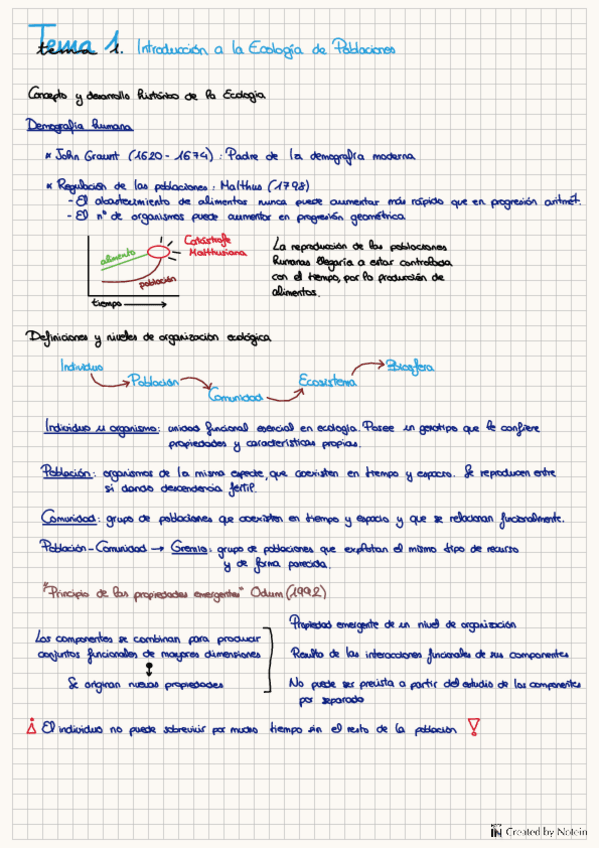 Tema 1. Introducción a la Ecología de Poblaciones
tema
Concepto y desarrollo histórico de la Ecología
Demografía humana
* John Graunt (1620 - 1674) : Padre de la demografía moderna
* Regulación de las poblaciones : Malthus (1798)
- El abastecimiento de alimentos nunca puede aumentar más rápido que en progresión aritmét.
- El nº de organismos puede aumentar en progresión geométrica
alimento
población
tiempo
Catástrofe
Malthusiana
La reproducción de las poblaciones
humanas llegaría a estar controlada
con el tiempo, por la producción de
alimentos.
Definiciones y niveles de organización ecológica
Individuo
Población
Comunidad
Ecosistema
Biosfera
Individuo u organismo: unidad funcional esencial en ecología. Posee un genotipo que le confiere
propiedades y características propias.
Población: organismos de la misma especie, que coexisten en tiempo y espacio. Se reproducen entre
sí dando descendencia fértil.
Comunidad: grupo de poblaciones que coexisten en tiempo y espacio y que se relacionan funcionalmente.
Población-Comunidad → Gremio: grupo de poblaciones que explotan el mismo tipo de recurso
y de forma parecida.
"Principio de las propiedades emergentes" Odum (1992)
Los componentes se combinan para producir
conjuntos funcionales de mayores dimensiones
Se originan nuevas propiedades
Propiedad emergente de un nivel de organización
Resulta de las interacciones funcionales de sus componentes
No puede ser prevista a partir del estudio de los componentes
por separado
¡ El individuo no puede sobrevivir por mucho tiempo sin el resto de la población !
IN Created by Notein